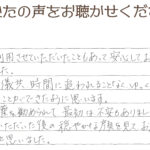 たの声をお聴かせくだ
用させていただいたこともあって安心してお
儀共 時間に追われることなく ゆっくり
ことができたように思います。
を勧められて 最初は不安もありまし
いただいた後の 穏やかな顔を見てお
と思いました。